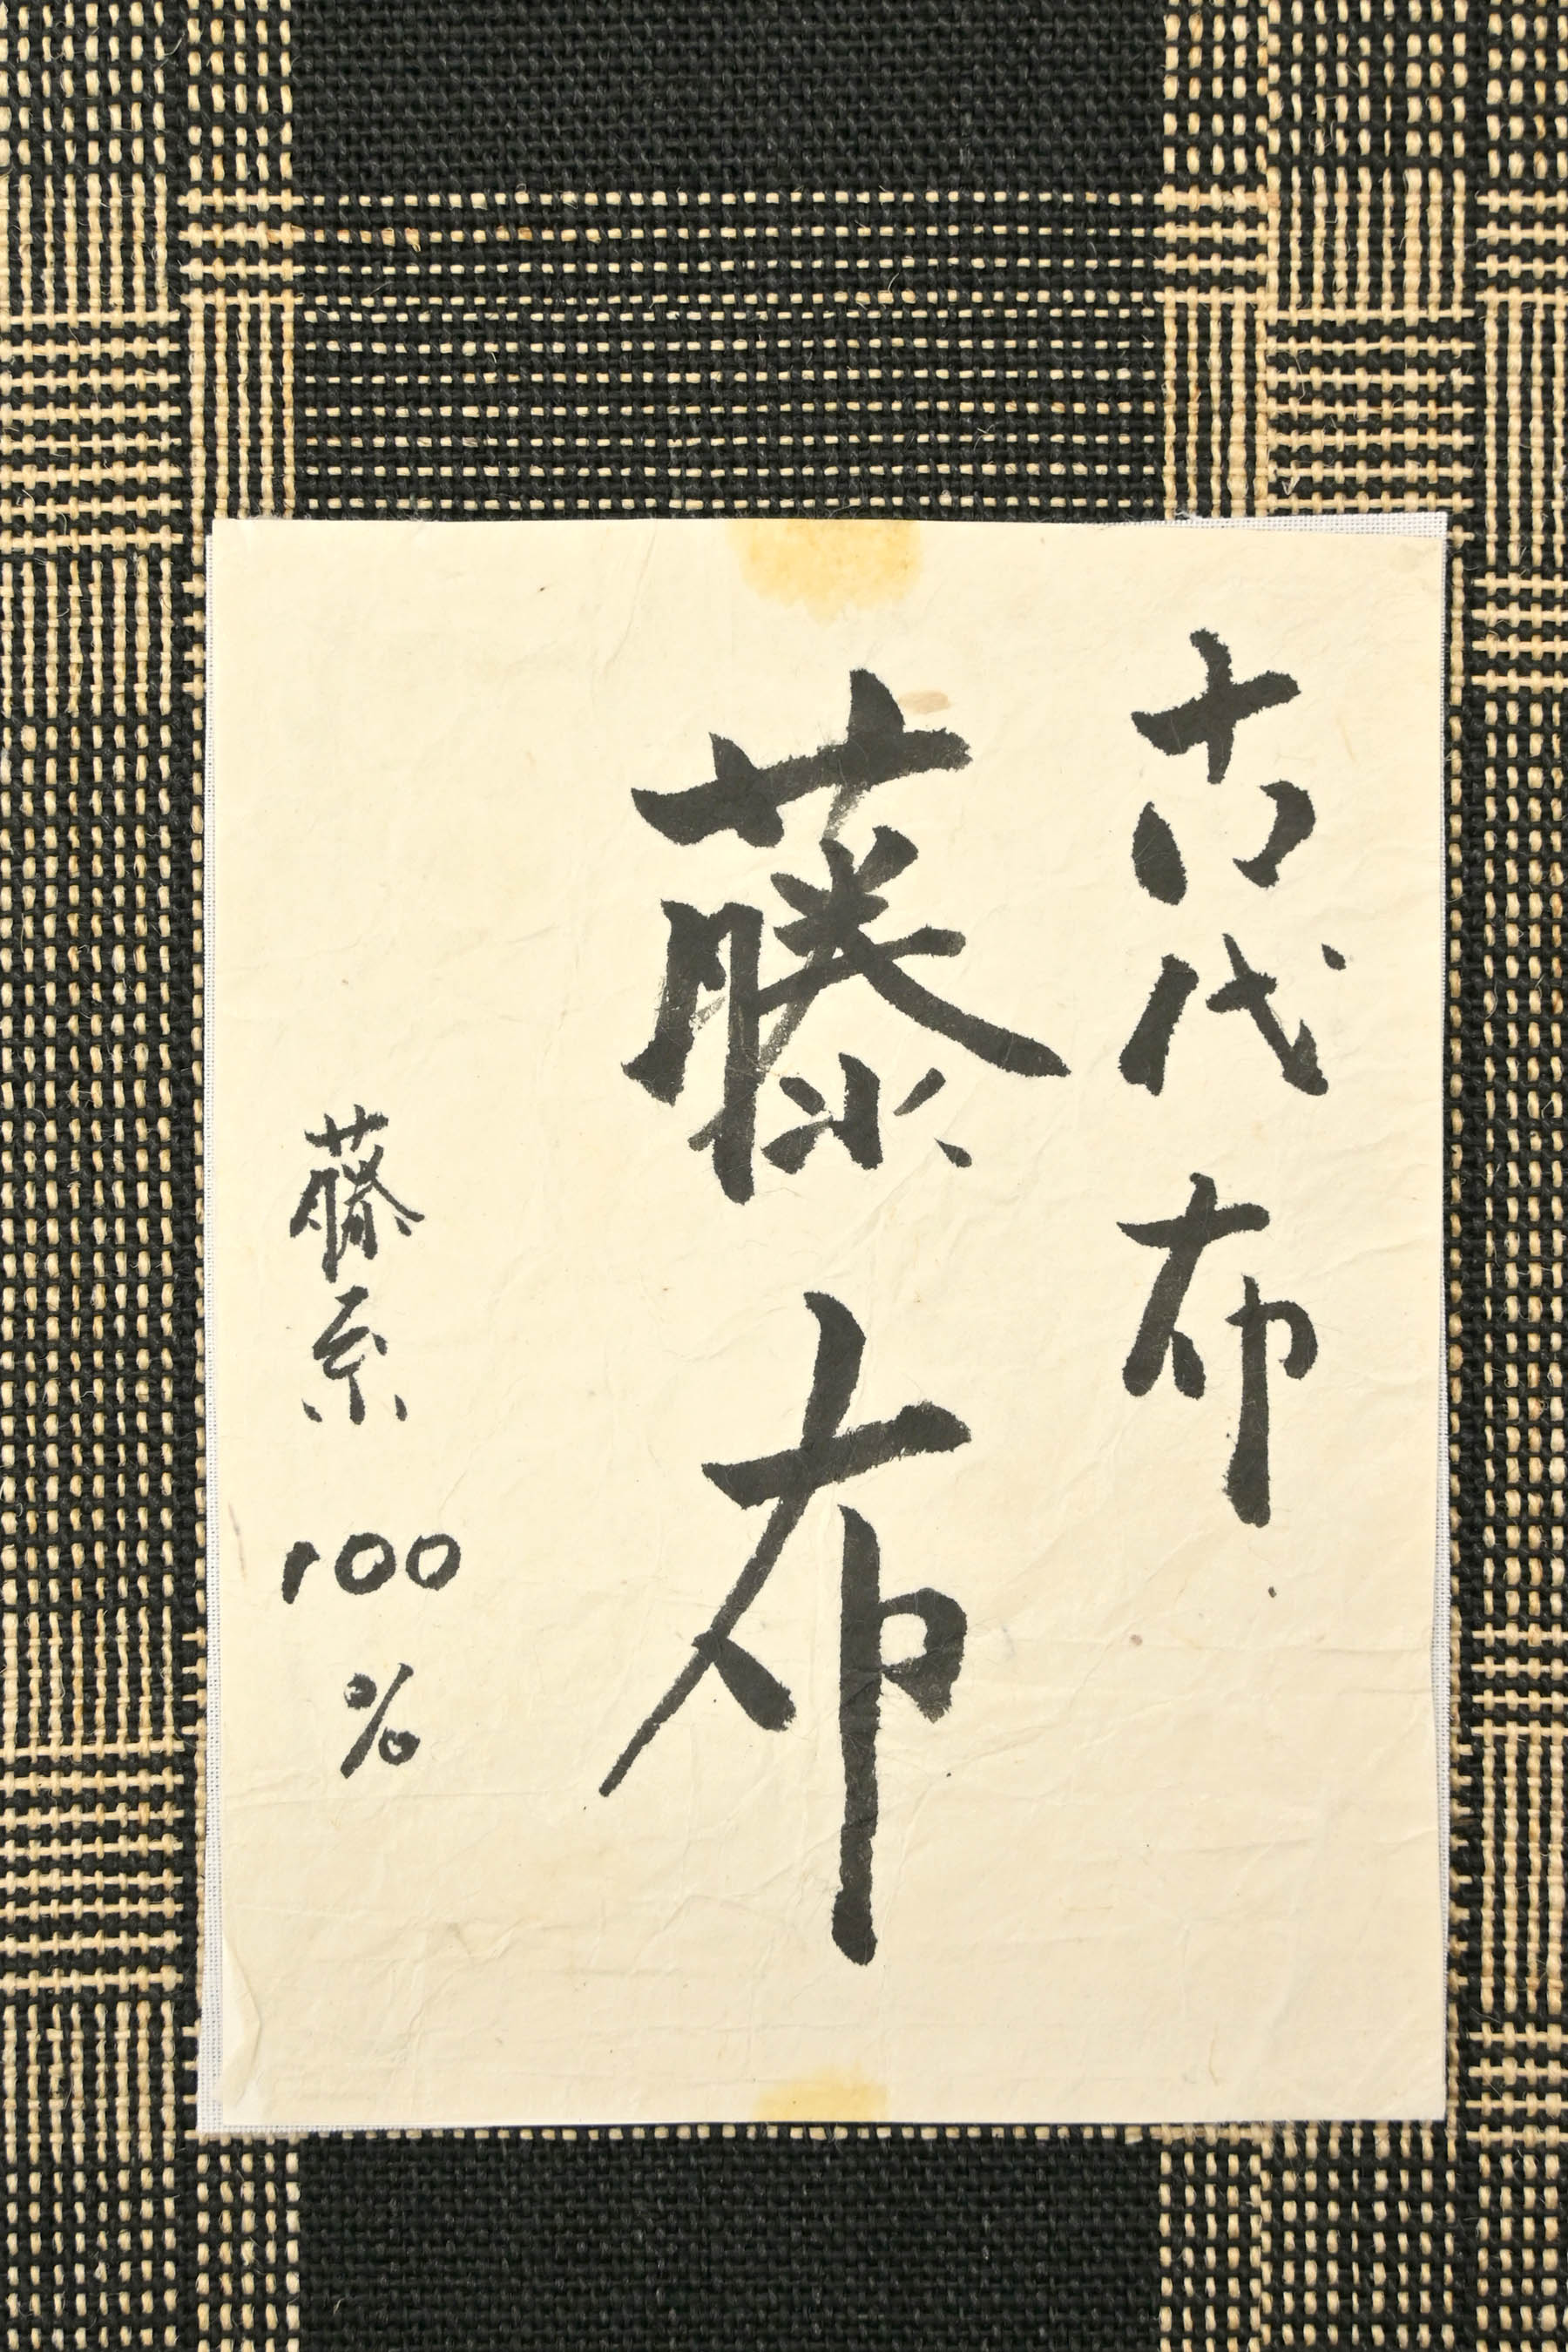 古代布
藤布
藤糸100%